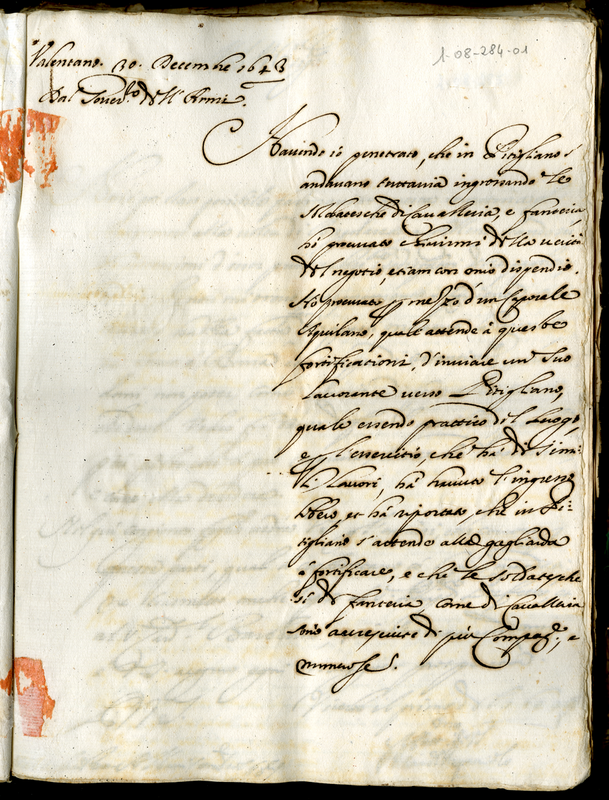 1-08-284-01
Valentano. 30. Decembre 1643
Dal Gover.re dell'Armi.
Havendo io penetrato, che in Pitigliano s'
andavano tuttavia ingrossando le
Soldatesche di Cavalleria, e fanteria,
hò procurato chiarirmi della verità
del negotio, etiam con mio dispendio.
Hò procurato p mezzo d'un Caporale
Aquilano, quale attende à queste
fortificationi, d'inviare un Suo
lavorante verso Pitigliano,
quale essendo prattico del luogo
e p l'essercitio, che hà di simi-
li lavori, hà havuto l'ingresso
libero, et hà riportato, che in Pi-
tigliano s'attende alla gagliarda
à fortificare, e che le soldatesche
sì di fanteria, come di Cavalleria
sono accresciute di più Compag.e, e
numerose.